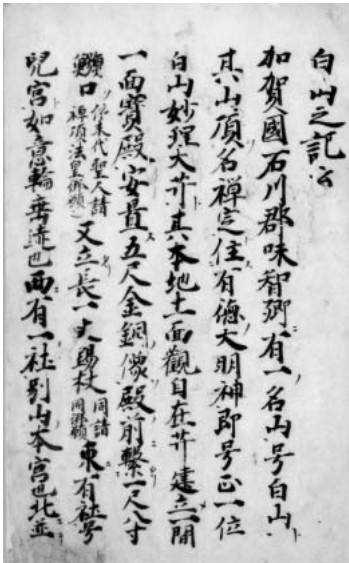 白山之記
加賀國石川郡味智郷有一名山号白山
其山頂名禪定住有徳大明神即号正一位
白山妙理大𦬇其本地十一面觀自在𦬇建立一間
一面寶殿安置五尺金銅像殿前繫一尺八寸
鰐口依末代聖人請禪頂法皇御願又立長一丈錫杖同請同御願東有社号
兒宮如意輪垂迹也西有一社別山本宮也北並